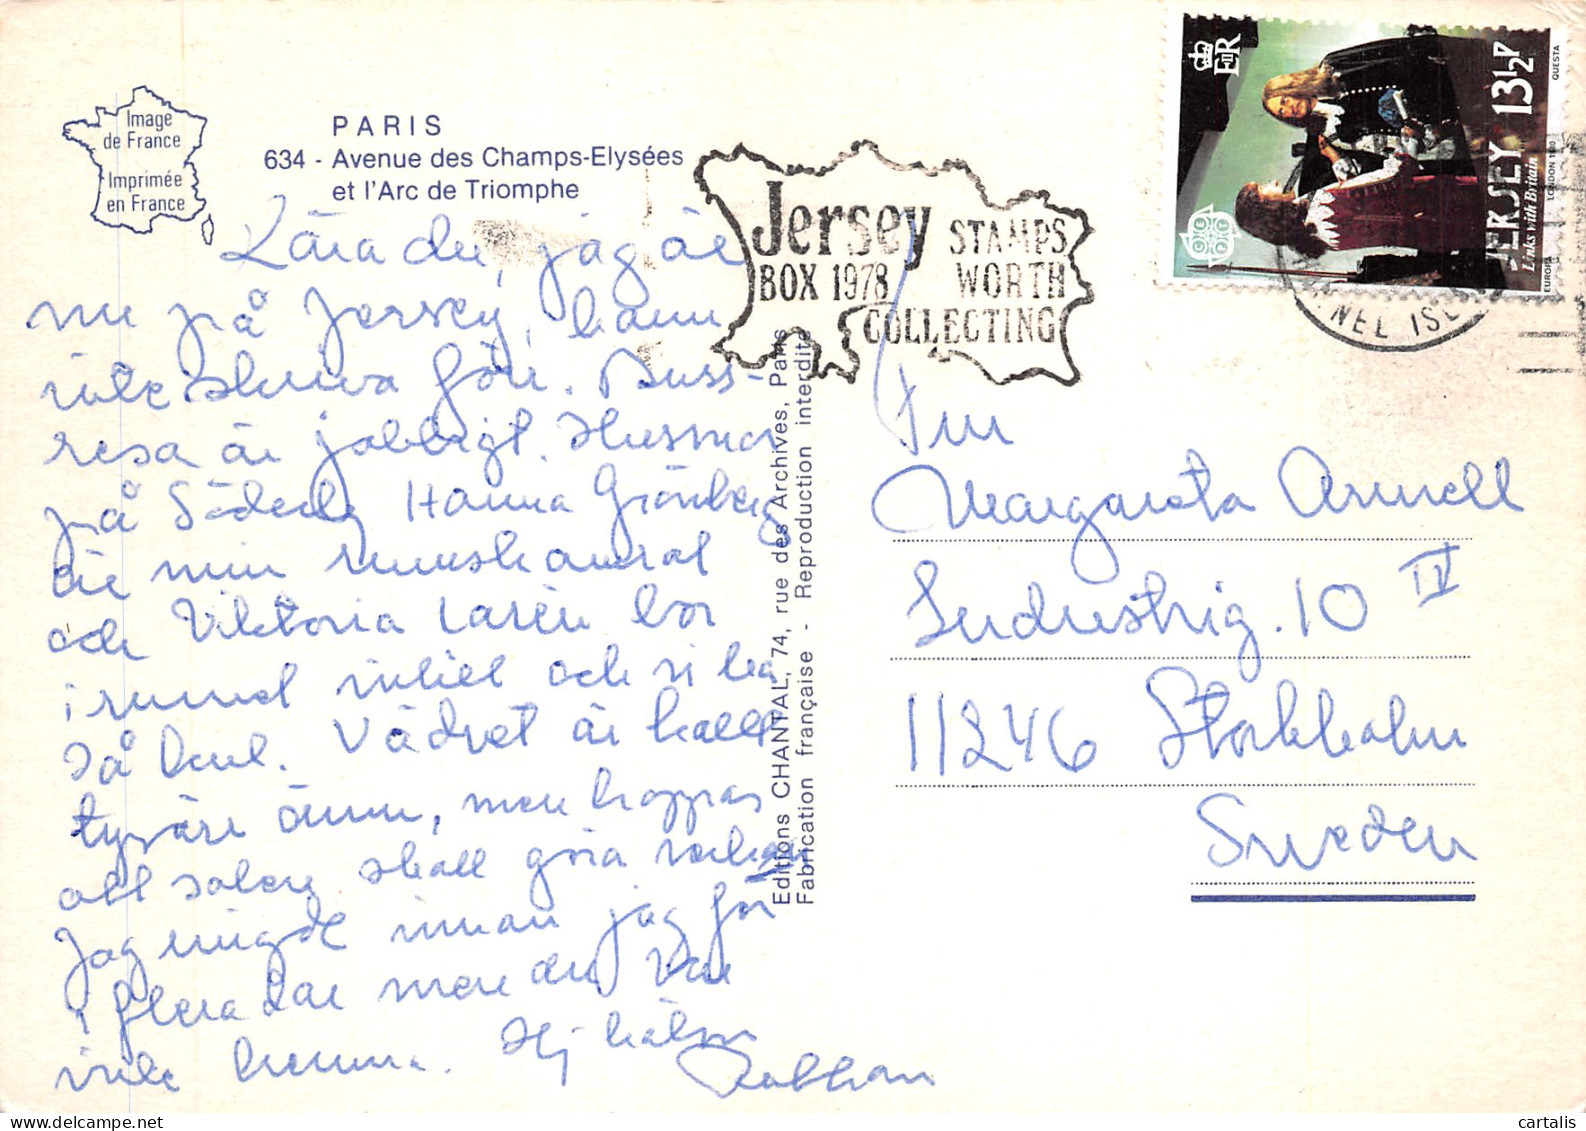 Image
de France
Imprimée
en France
PARIS
634 - Avenue des Champs-Elysées
et l'Arc de Triomphe
Jersey STAMPS
BOX 1978 WORTH
COLLECTING
NEL ISL
E II R
JERSEY 13½P
Links with Britain
EUROPA LONDON 1980 QUESTA
CEPT
Kära du, jag är
nu på Jersey, kann
inte skriva förr. Buss-
resa är jobbigt. Husmor
på Söderby Hanna Grönberg
är min rumskamrat
och Viktoria Larén bor
i rummet intill och vi ha
så kul. Vädret är kallt
tyvärr ännu, men hoppas
att solen skall göra verkan
Jag ringde innan jag för
i flera dar men du var
inte hemma. Hej hälsn
Editions CHANTAL, 74, rue des Archives, Paris
Fabrication française - Reproduction interdite
Fru
Margareta Arnell
Industrig. 10 IV
11246 Stockholm
Sweden